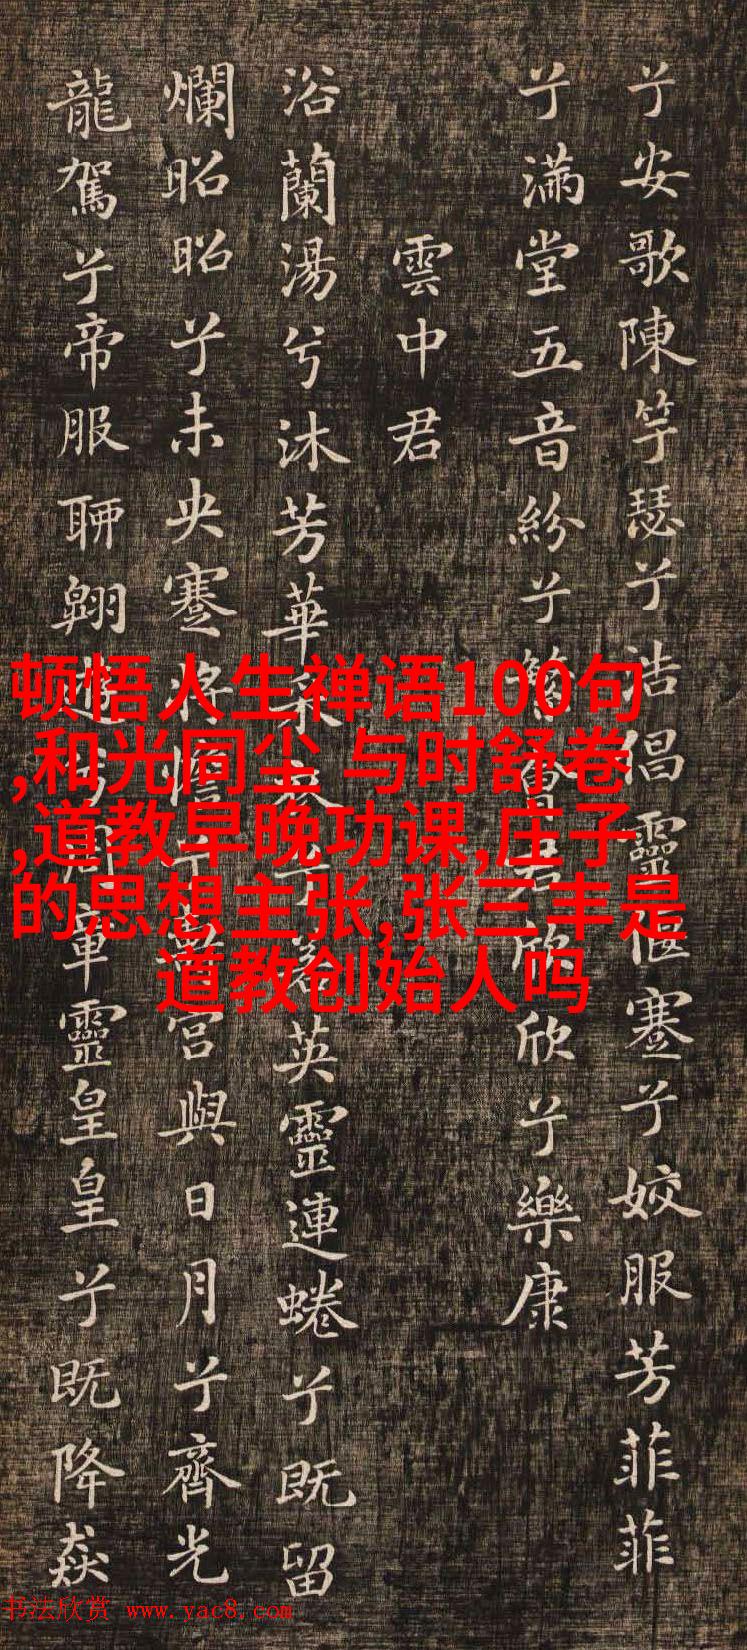 兮安歌陳竽瑟兮浩倡靈偃蹇兮姣服芳菲菲
兮滿堂五音紛兮繁會君欣欣兮樂康
雲中君
浴蘭湯兮沐芳華采衣兮若英靈連蜷兮既留
爛昭昭兮未央蹇將憺兮壽宮與日月兮齊光
龍駕兮帝服聊翱遊兮周章靈皇皇兮既降猋
顿悟人生禅语100句
,和光同尘 与时舒卷
,道教早晚功课,庄子
的思想主张,张三丰是
道教创始人吗
书法欣赏 www.yac8.com